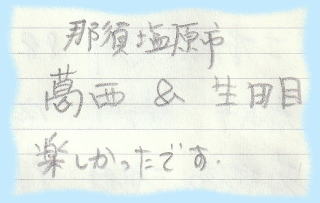 那須塩原市
葛西 & 生田目
楽しかったです.